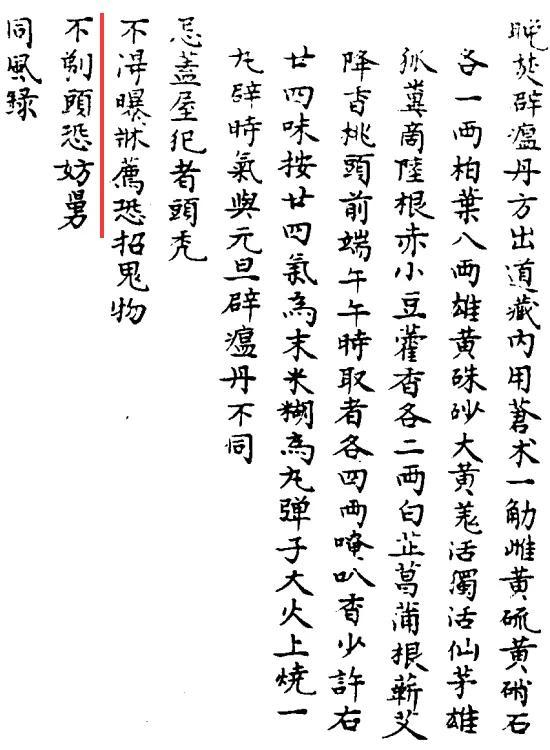 晚焚辟瘟丹方出道藏內用蒼术一觔雌黄硫黄硝石
各一两柏葉八两雄黄硃砂大黄羗活獨活仙茅雄
狐糞商陸根赤小豆藿香各二两白芷菖蒲根蕲艾
降香桃頭前端午午時取者各四两唵叭香少許右
廿四味按廿四氣為末米糊為丸弹子大火上燒一
丸辟時氣與元旦辟瘟丹不同
忌蓋屋犯者頭秃
不淂曝牀薦恐招鬼物
不剃頭恐妨舅
同風錄